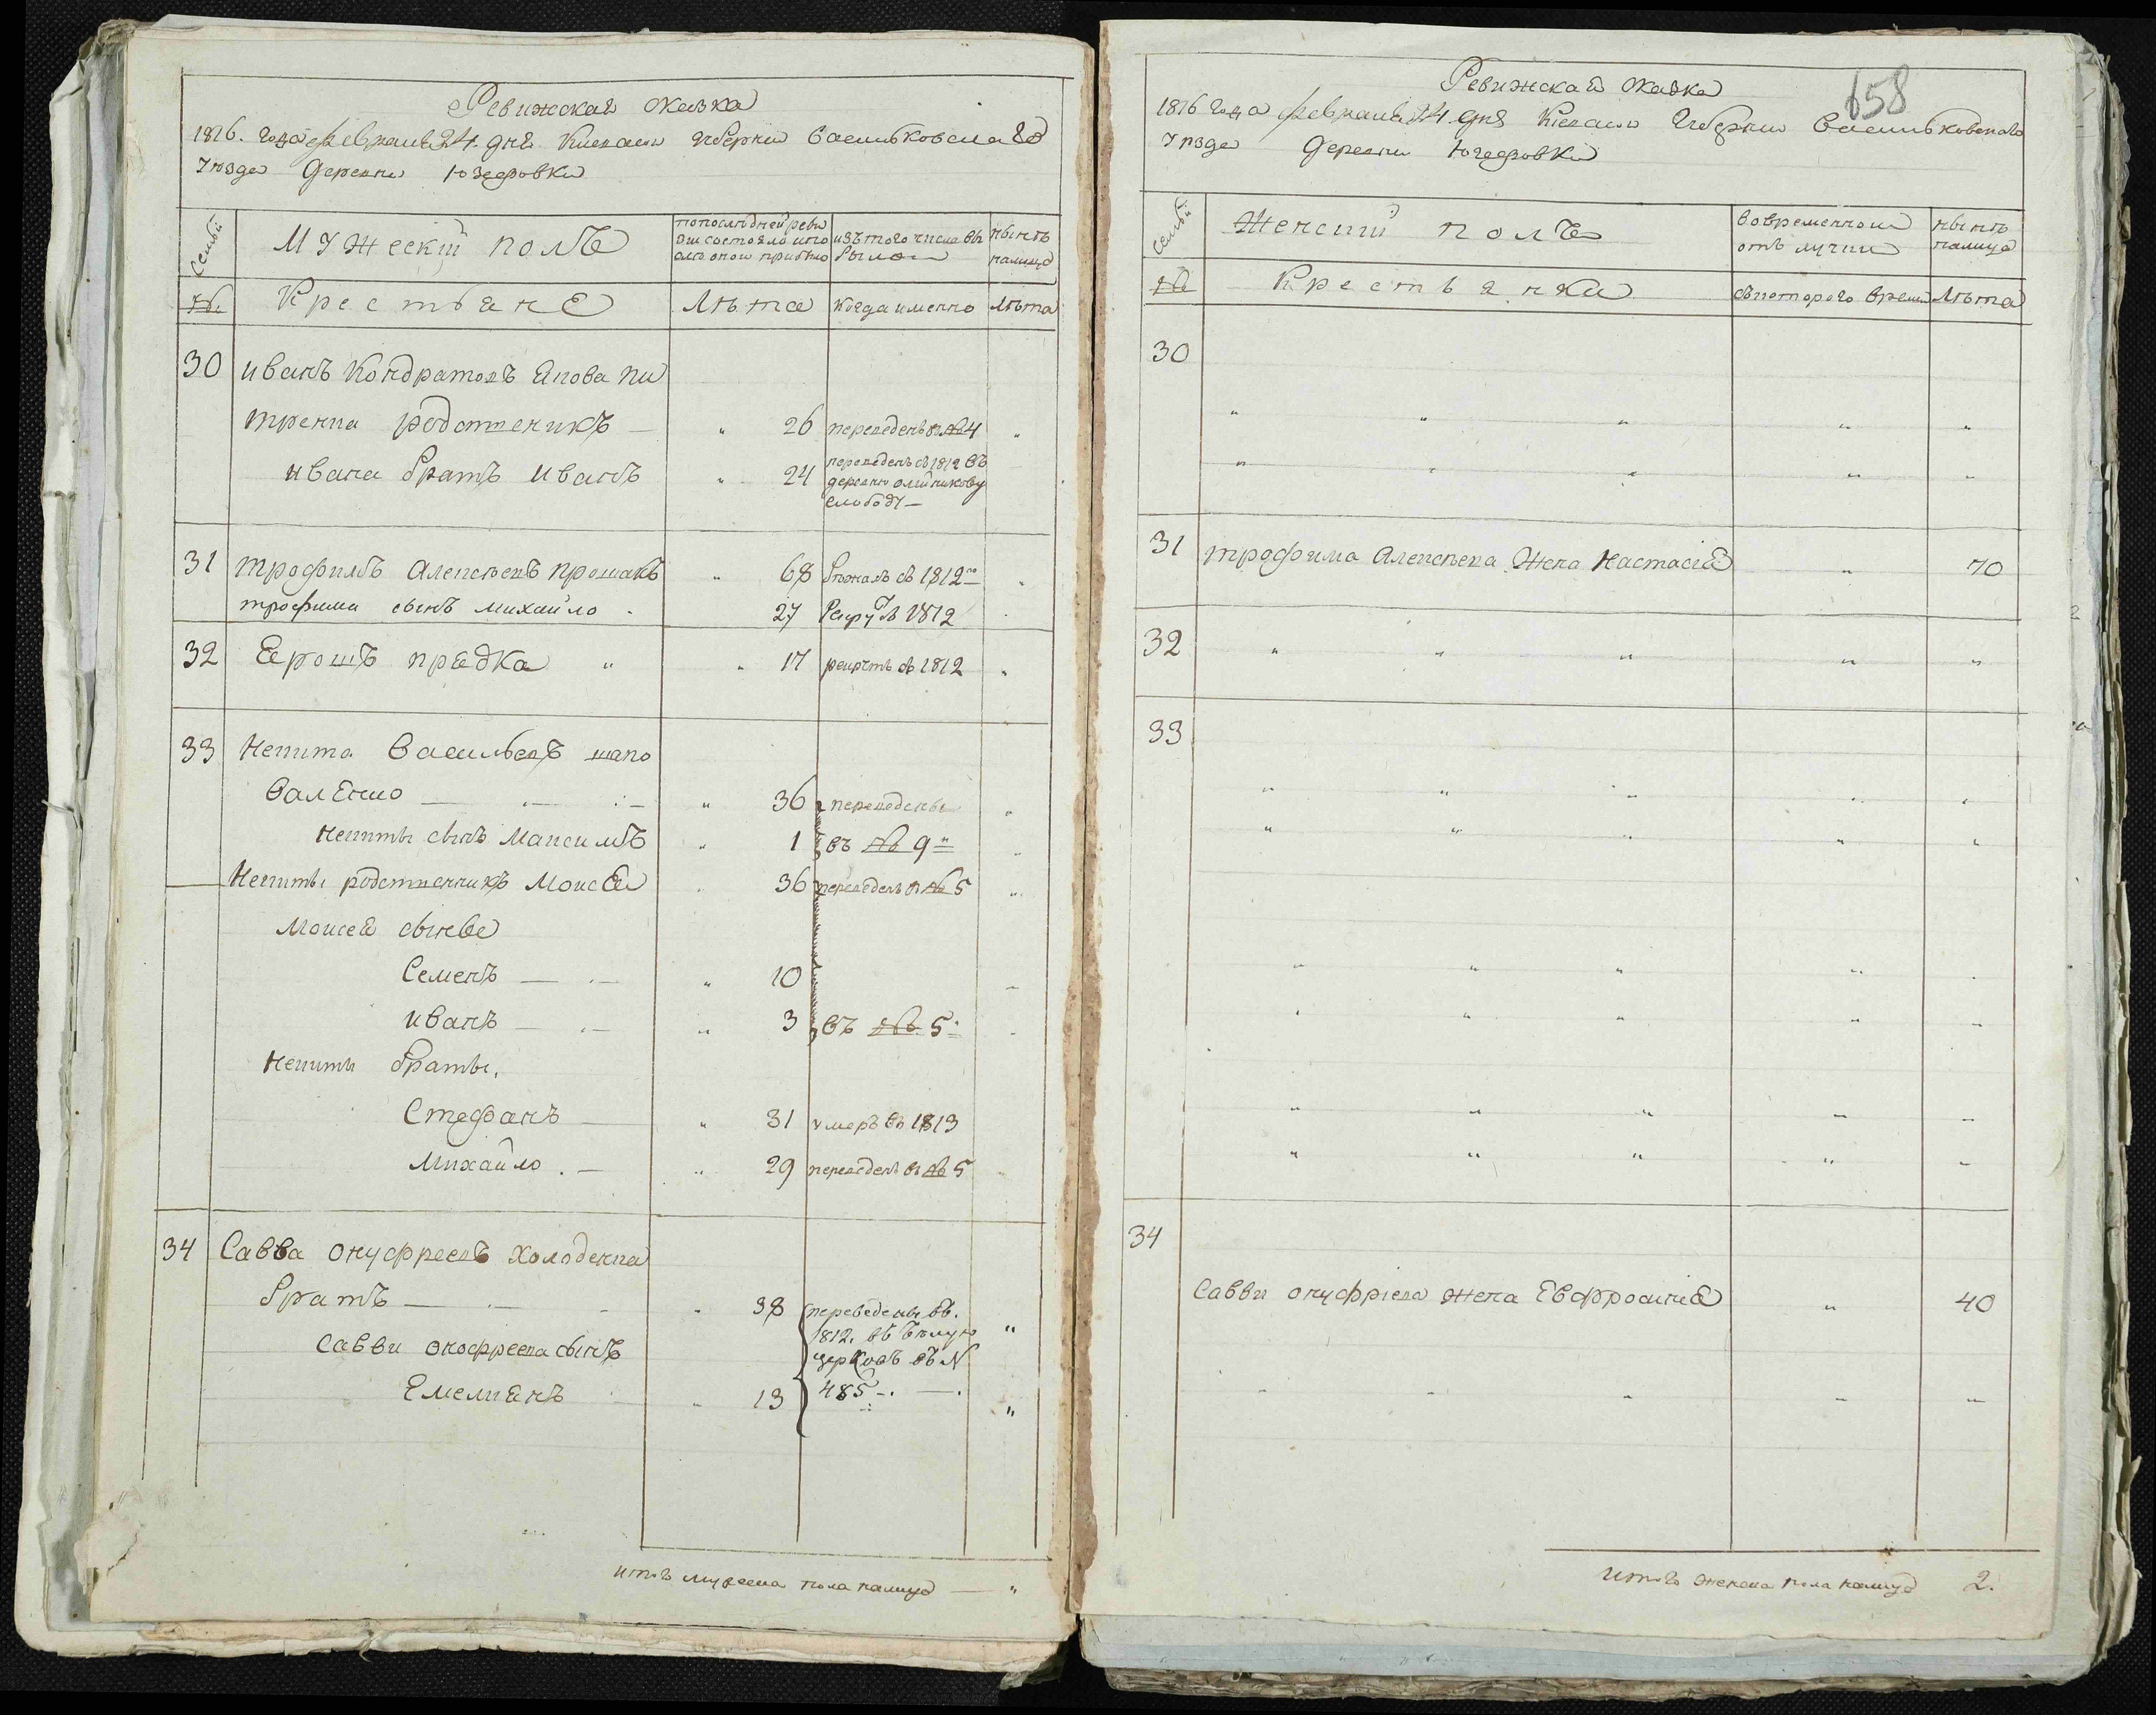 Ревижская сказка
1816. года февраля 24. дня Кіевской губерніи Васильковскаго
Уѣзда Деревни Юзефовки
Семьи
Мужескій полъ
по послѣдней реви
зіи состояло и по
слѣ оной прибыло
изъ того числа вы
было
нынѣ
налицо
№
Крестьяне
Лѣта
когда именно
Лѣта
30 иванъ Кондратовъ Якова Пи
тренка родственикъ — " 26 переведенъ в №4 "
ивана братъ иванъ " 24 переведенъ в 1812 въ
деревню олийникову
слободу —
31 трофимъ Алексѣевъ прошакъ " 68 бѣжалъ в 1812 "
трофима сынъ михайло . 27 Рекрутъ 1812
32 Ерошъ предка " " 17 рекрутъ в 1812 "
33 Некита Васильевъ шапо
валенко — " 36 переведены "
Некиты сынъ Максимъ " 1 въ № 9 "
Некиты родственникъ Моисей " 36 переведенъ в №5 "
Моисея сынве
Семенъ — " 10
иванъ — " 3 въ № 5
Некиты браты,
Стефанъ — " 31 умеръ въ 1813
Михайло . — " 29 переведенъ в №5
34 Савва онуфреевъ холоденка
братъ — " 38 переведены въ.
1812. въ бѣлую "
церковь въ №
Савви онофреева сынъ
Емелиянъ " 13 485 "
итогъ мужеска пола налицо — "
658
Ревижская сказка
1816 года февраля 24. дня Кіевской губерніи Васильковскаго
Уѣзда Деревни Юзефовки
Семьи
Женскій полъ
во временной
отлучки
нынѣ
налицо
№
Крестьянка
съ котораго времени
Лѣта
30
" " " " "
" " " " "
31 трофима Алексѣева Жена Настасія " 70
32 " " " " "
33
" " " " "
" " " " "
" " " " "
" " " " "
" " " " "
" " " " "
34
Савви онуфріева жена Евфросинія " 40
" " " " "
итогъ женска пола налицо 2.